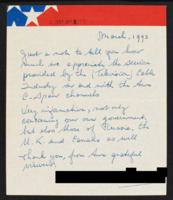 March, 1993
Just a note to tell you how
much we appreciate the service
provided by the (Television) Cable
Industry to us with the two
C-Span channels.
Very informative, not only
concerning our own government,
but also those of Russia, the
U.K. and Canada as well
Thank you, from two grateful
viewers,